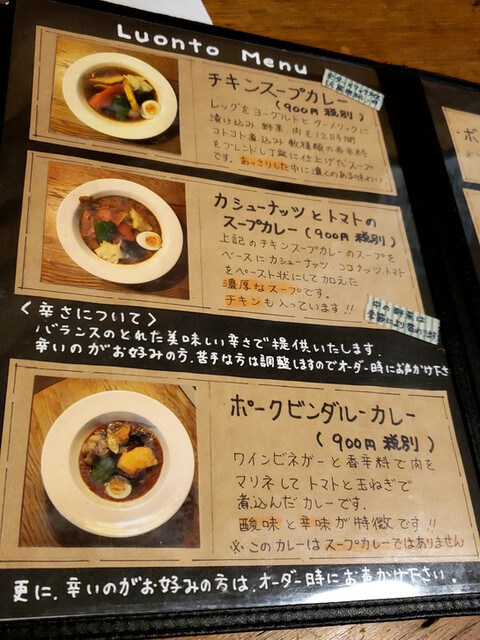 Luonto Menu
チキンスープカレー
(900円 税別)
レッグをヨーグルトとターメリックに
漬け込み 野菜、肉を12時間
コトコト煮込み 数種類の香辛料
をブレンドし丁寧に仕上げたスープ
です。あっさりした中に濃くのある味わい
カシューナッツとトマトの
スープカレー (900円 税別)
上記のチキンスープカレーのスープを
ベースにカシューナッツ、ココナッツ、トマト
をペースト状にして加えた
濃厚なスープです。
チキンも入っています!!
中の野菜は
季節により変わります
<辛さについて>
バランスのとれた美味しい辛さで提供いたします。
辛いのがお好みの方、苦手な方は調整しますのでオーダー時にお声かけ下さ
ポークビンダルーカレー
(900円 税別)
ワインビネガーと香辛料で肉を
マリネして トマトと玉ねぎで
煮込んだ カレーです。
酸味と辛味が特徴です!!
※このカレーはスープカレーではありません
更に、辛いのがお好みの方は、オーダー時にお声かけ下さい。
ポ